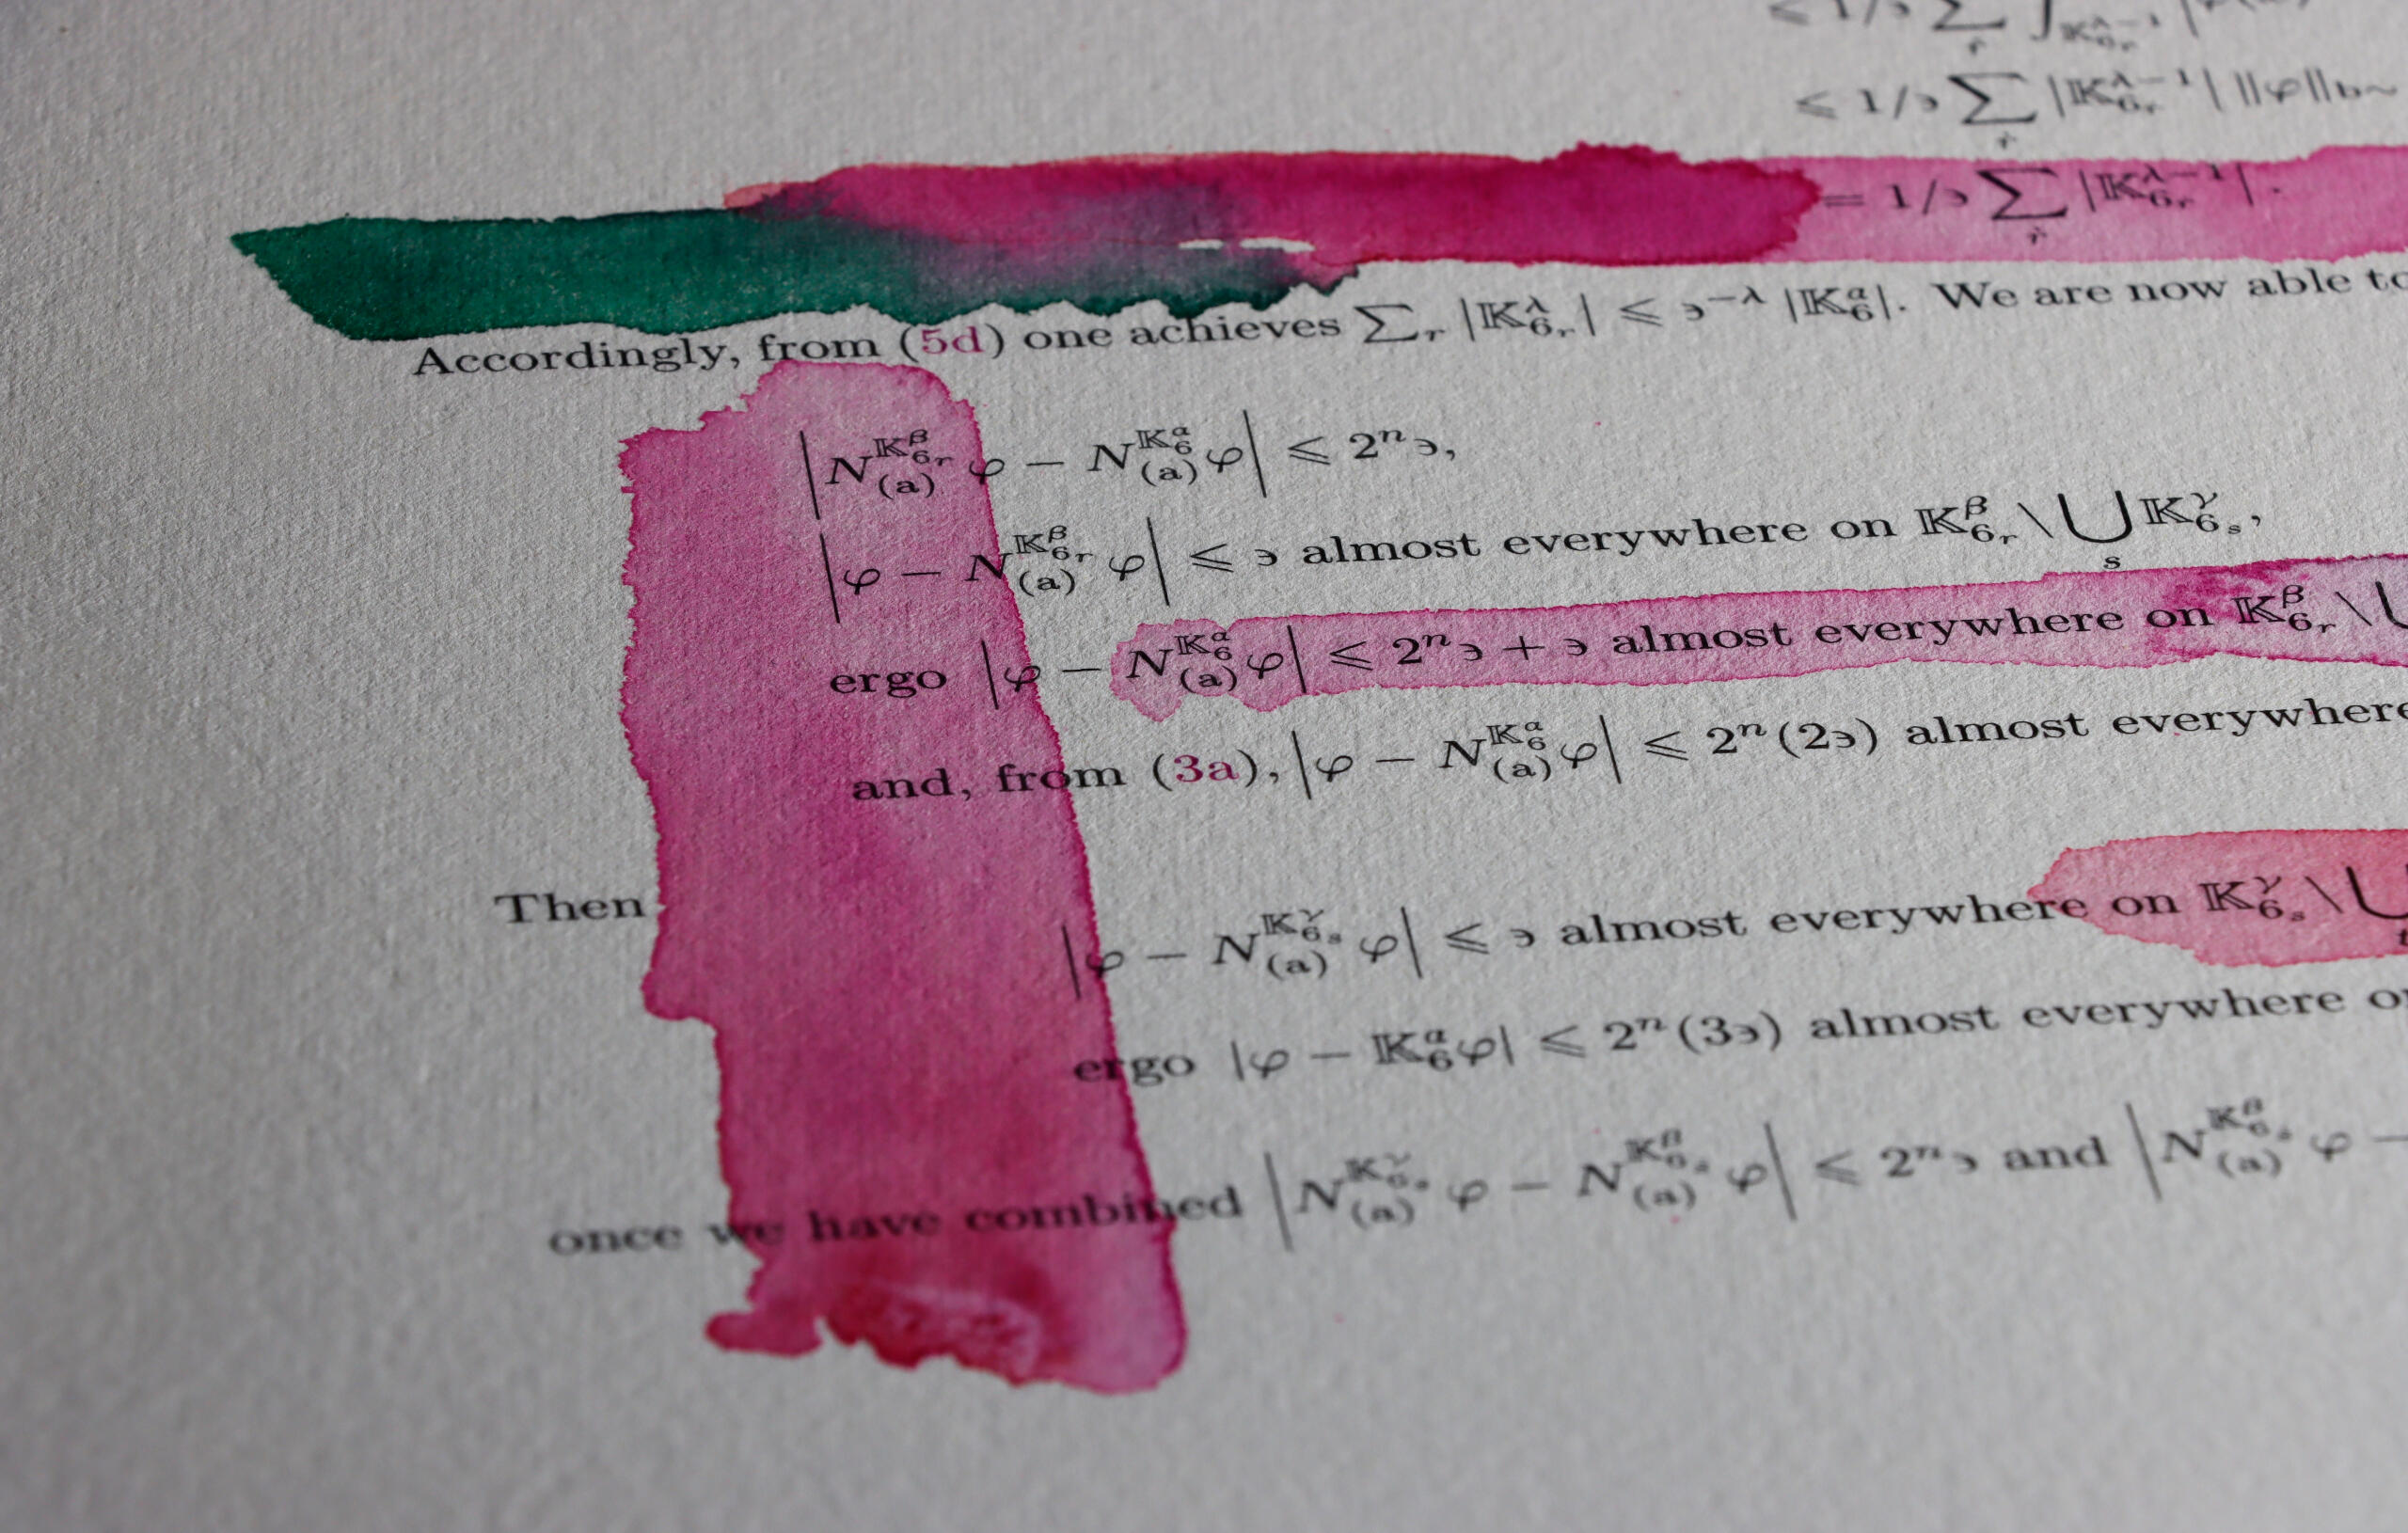 ⩽ 1/϶ ∑_r ∫_{𝕂_{6_r}^{λ−1}} |
⩽ 1/϶ ∑_r |𝕂_{6_r}^{λ−1}| ||φ||_{b~}
= 1/϶ ∑_r |𝕂_{6_r}^{λ−1}|.
Accordingly, from (5d) one achieves ∑_r |𝕂_{6_r}^λ| ⩽ ϶^{−λ} |𝕂_6^α|. We are now able to
|N_{(a)}^{𝕂_{6_r}^β} φ − N_{(a)}^{𝕂_6^α} φ| ⩽ 2^n ϶,
|φ − N_{(a)}^{𝕂_{6_r}^β} φ| ⩽ ϶ almost everywhere on 𝕂_{6_r}^β \ ⋃_s 𝕂_{6_s}^γ,
ergo |φ − N_{(a)}^{𝕂_6^α} φ| ⩽ 2^n ϶ + ϶ almost everywhere on 𝕂_{6_r}^β \ ⋃
and, from (3a), |φ − N_{(a)}^{𝕂_6^α} φ| ⩽ 2^n (2϶) almost everywhere
Then
|φ − N_{(a)}^{𝕂_{6_s}^γ} φ| ⩽ ϶ almost everywhere on 𝕂_{6_s}^γ \ ⋃_t
ergo |φ − 𝕂_6^α φ| ⩽ 2^n (3϶) almost everywhere
once we have combined |N_{(a)}^{𝕂_{6_s}^γ} φ − N_{(a)}^{𝕂_{6_s}^β} φ| ⩽ 2^n ϶ and |N_{(a)}^{𝕂_{6_s}^β} φ −